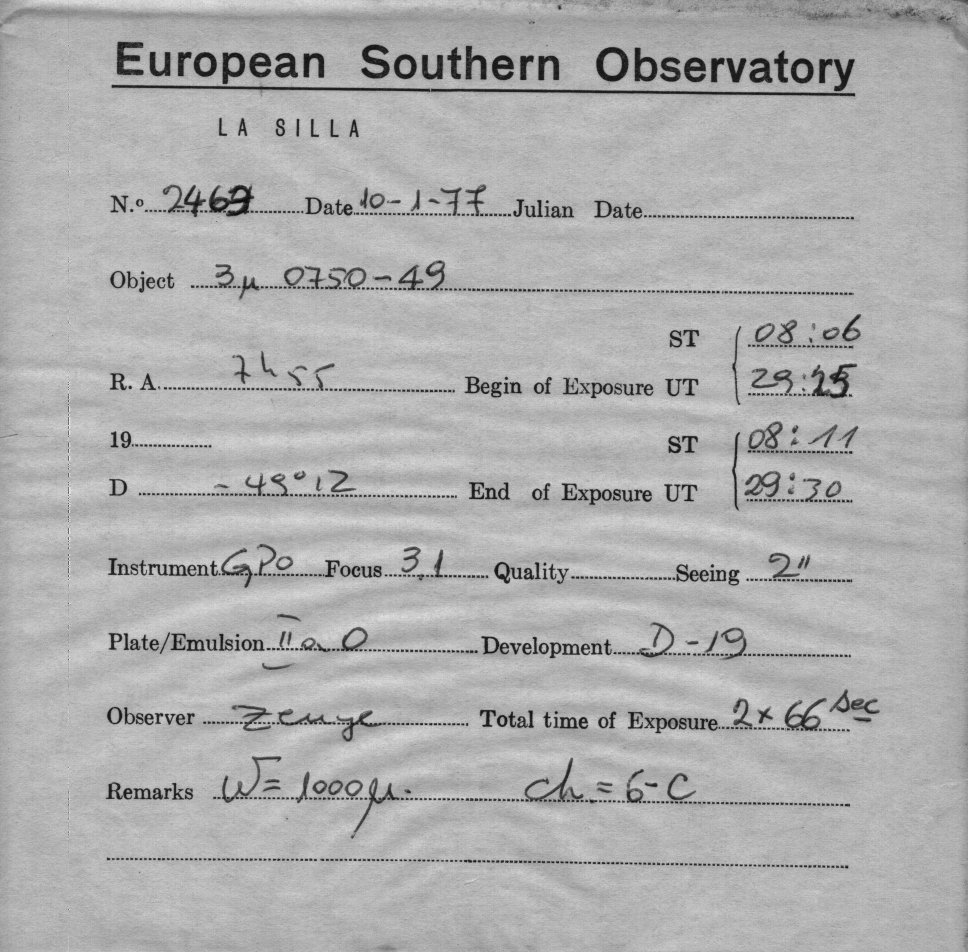 European Southern Observatory
LA SILLA
N.º 2469 Date 10-1-77 Julian Date
Object 3μ 0750-49
ST 08:06
R. A. 7h 55 Begin of Exposure UT 29:25
19 ST 08:11
D -49°12 End of Exposure UT 29:30
Instrument GPO Focus 3.1 Quality Seeing 2"
Plate/Emulsion IIa O Development D-19
Observer Total time of Exposure 2x66 sec
Remarks W=1000μ. ch.=6-C